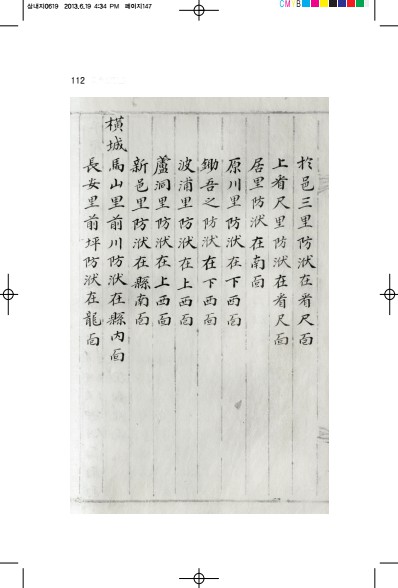 삼내지0619 2013.6.19 4:34 PM 페이지147
112
於邑三里防洑在看尺面
上看尺里防洑在看尺面
居里防洑在南面
原川里防洑在下西面
鋤吾之防洑在下西面
波浦里防洑在上西面
蘆洞里防洑在上西面
新邑里防洑在縣南面
橫城馬山里前川防洑在縣內面
長安里前坪防洑在龍面